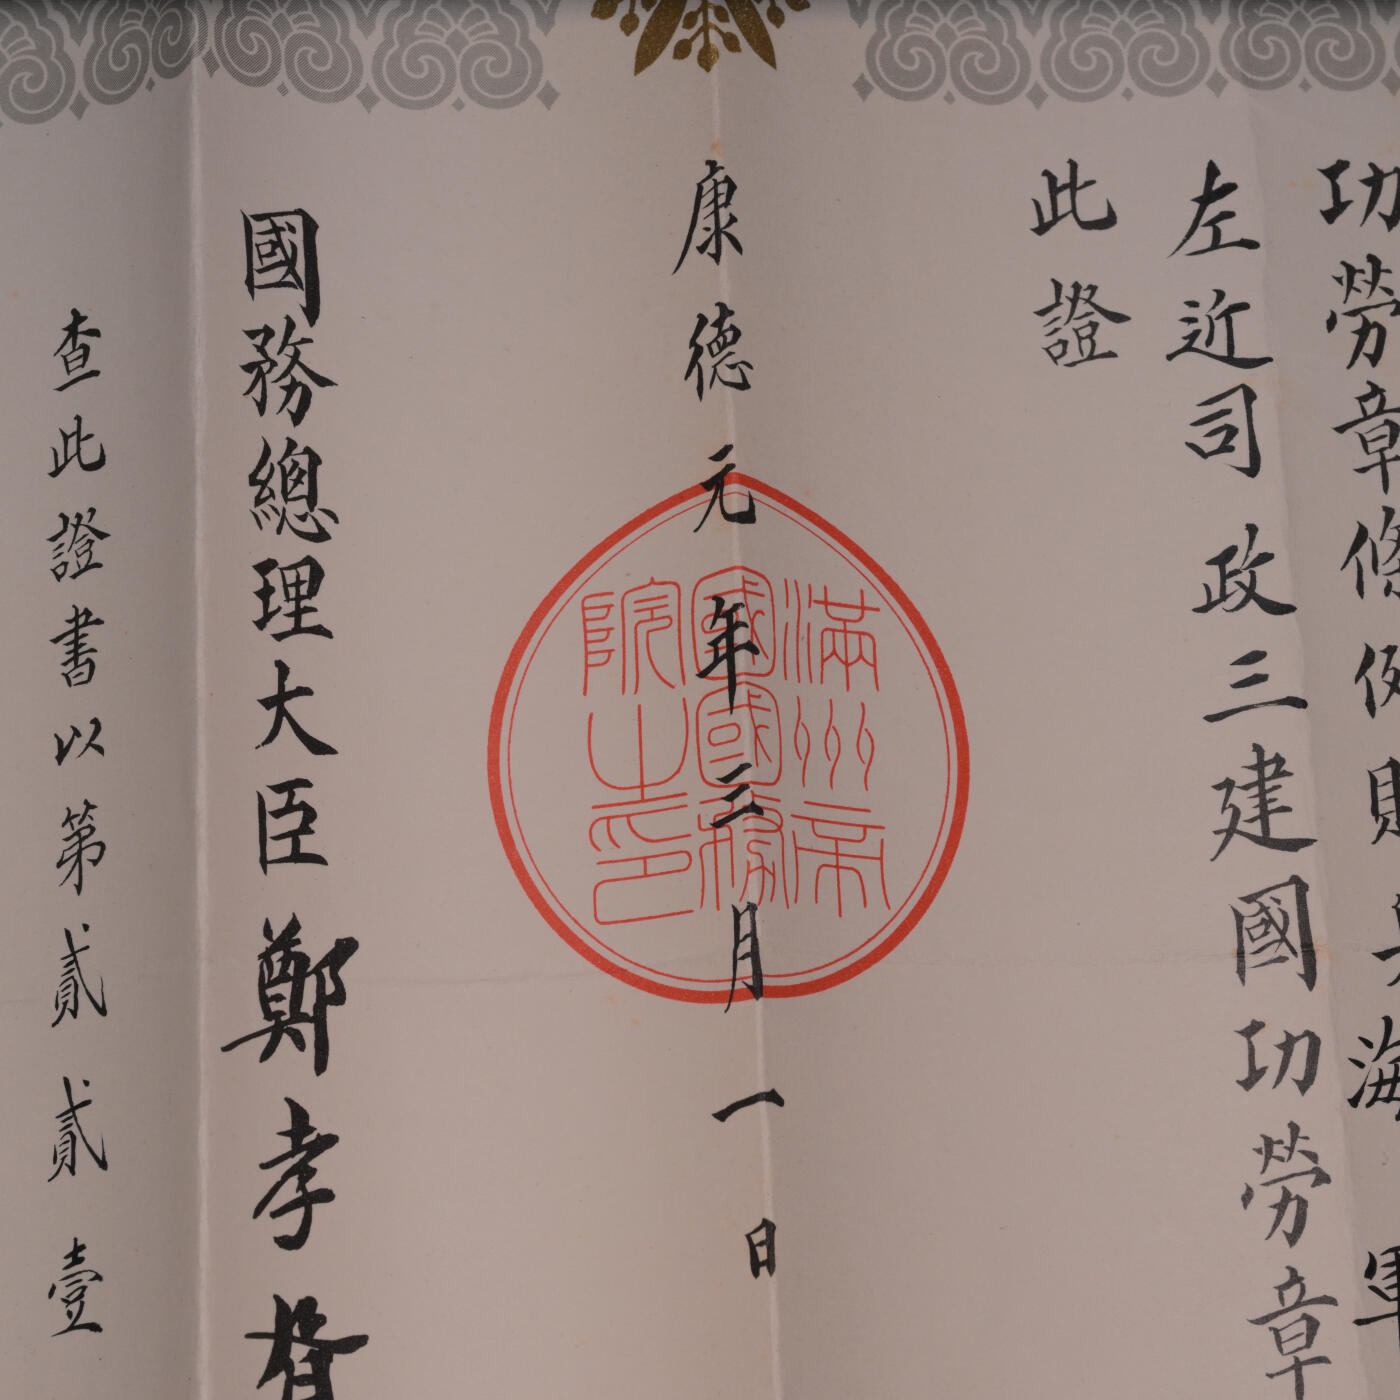 功勞章條例海軍
左近司政三建國功勞章
此證
康德元年三月一日
滿州帝
國國務
院之印
國務總理大臣鄭孝胥
查此證書以第貳貳壹